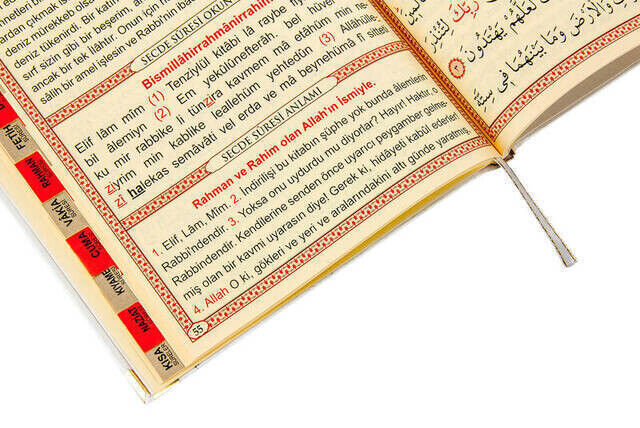 deniz mürekkep olsa
deniz tükenirdi. Bir katı
sırf sizin gibi bir beşerim, am
ancak bir tek ilâhtır. Onun için h
sâlih bir amel işlesin ve Rabb'ine ibad
SECDE SÛRESİ OKUN
Bismillâhirrahmânirrahîm
Elif lâm mîm (1) Tenzîyül kitâbi lâ raybe
bil âlemiyn (2) Em yekûlûnefterâh. bel h
ku mir rabbike li tünzira kavmem mâ etâhüm min ne
ziyrim min kablike leallehüm yehtedûn (3) Allâhülle
zî halekas semâvâti vel erda ve mâ beynehümâ fî sittet
SECDE SÛRESİ ANLAMI
Rahman ve Rahim olan Allah'ın İsmiyle.
1. Elif, Lâm, Mim. 2. İndirilişi bu kitabın şüphe yok bunda âlemlerin
Rabbi'ndendir. 3. Yoksa onu uydurdu mu diyorlar? Hayır! Haktır, o
Rabbindendir. Kendilerine senden önce uyarıcı peygamber gelme-
miş olan bir kavmi uyarasın diye! Gerek ki, hidâyeti kabûl ederler!
4. Allah O ki, gökleri ve yeri ve aralarındakini altı günde yaratmış,
55
رَبِّكَ لِتُنْذِرَ
لَعَلَّهُمْ يَهْتَدُونَ
وَالْأَرْضَ وَمَا بَيْنَهُمَا فِي سِتَّةِ
FETİH
SÛRESİ
RAHMAN
VAKIA
SÛRESİ
CUMA
KIYAME
NAZİAT
KISA
SÛRELER